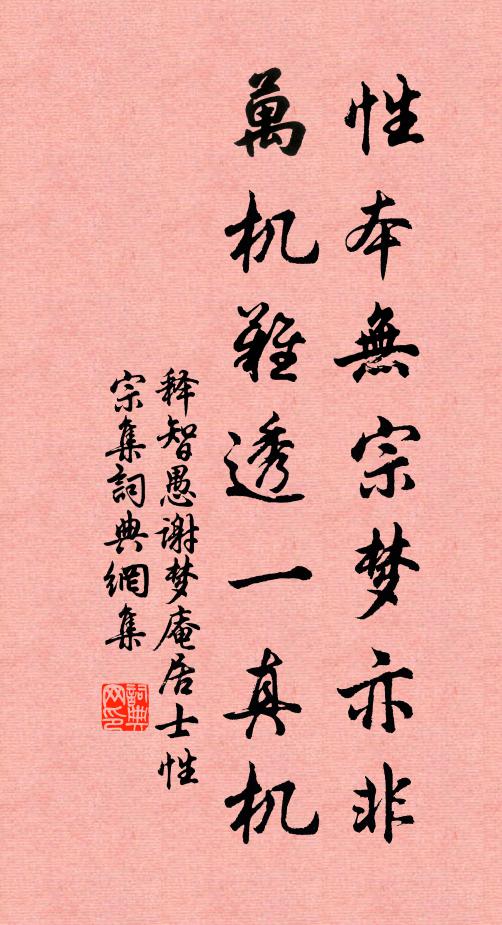 性本無宗梦亦非
萬机難透一真机
释智愚谢梦庵居士性
宗集詞典網集
詞典网印